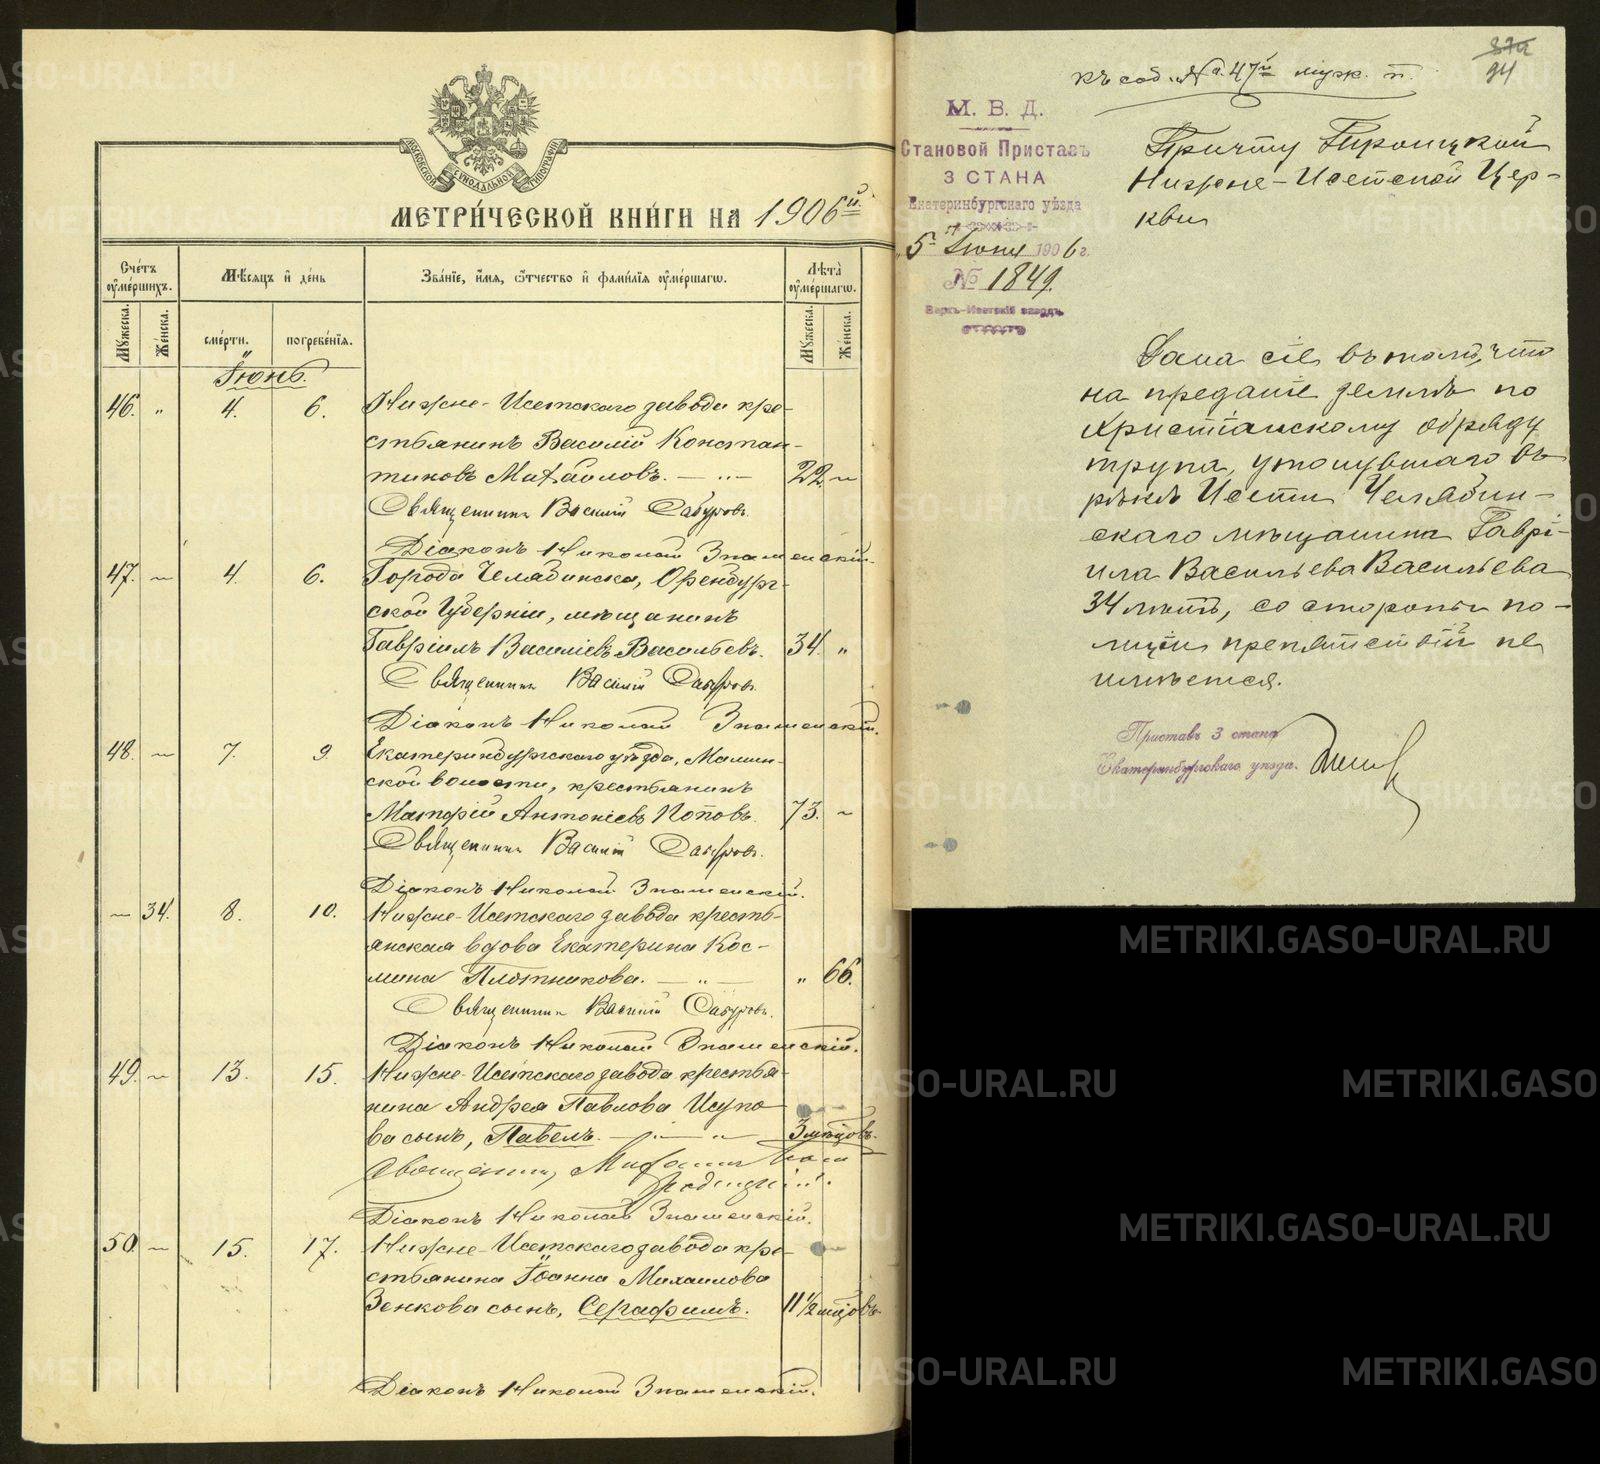 МОСКОВСКОЙ СѴНОДАЛЬНОЙ ТИПОГРАФІИ
МЕТРИ́ЧЕСКОЙ КНИ́ГИ НА 1906й.
Сче́тъ оу҆ме́ршихъ.
Мѣ́сяцъ и҆ де́нь
Зва́ніе, и҆́мя, ѻ҆́тчество и҆ фами́лія оу҆ме́ршагѡ.
Лѣта̀ оу҆ме́ршагѡ.
Мꙋ́жеска.
Же́нска.
сме́рти.
погребе́нія.
Мꙋ́жеска.
Же́нска.
Іюнь.
46. „ 4. 6. Нижне-Исетскаго завода кре-
стьянинъ Василій Констан-
тиновъ Михайловъ. — „ — 22. „
Священникъ Василій Сабуровъ.
Діаконъ Николай Знаменскій.
47. „ 4. 6. Города Челябинска, Оренбург-
ской губерніи, мѣщанинъ
Гавріилъ Василіевъ Васильевъ. 34. „
Священникъ Василій Сабуровъ.
Діаконъ Николай Знаменскій.
48. „ 7. 9. Екатеринбургскаго уѣзда, Мамин-
ской волости, крестьянинъ
Матфій Антоніевъ Поповъ. 73. „
Священникъ Василій Сабуровъ.
Діаконъ Николай Знаменскій.
„ 34. 8. 10. Нижне-Исетскаго завода кресть-
янская вдова Екатерина Кос-
мина Плотникова. — „ — „ 66.
Священникъ Василій Сабуровъ.
Діаконъ Николай Знаменскій.
49. „ 13. 15. Нижне-Исетскаго завода крестья-
нина Андрея Павлова Исупо-
ва сынъ, Павелъ. — „ — „ 3 мѣцовъ.
Священникъ
Діаконъ Николай Знаменскій.
50. „ 15. 17. Нижне-Исетскаго завода кре-
стьянина Іоанна Михаилова
Зенкова сынъ, Серафимъ. 11 1/2 мѣцовъ.
Діаконъ Николай Знаменскій.
94
къ соб. № 47й муж. п.
М. В. Д.
Становой Приставъ
3 СТАНА
Екатеринбургскаго уѣзда
„5“ Іюня 1906 г.
№ 1849.
Верхъ-Исетскій заводъ
Причту Троицкой
Нижне-Исетской Цер-
кви
Дана сіе въ томъ, что
на преданіе землѣ по
Христіанскому обряду
трупа, утонувшаго въ
рѣкѣ Исети Челябин-
скаго мѣщанина Гаврі-
ила Васильева Васильева
34 лѣтъ, со стороны по-
лиціи препятствій не
имѣется.
Приставъ 3 стана
Екатеринбургскаго уѣзда.
METRIKI.GASO-URAL.RU